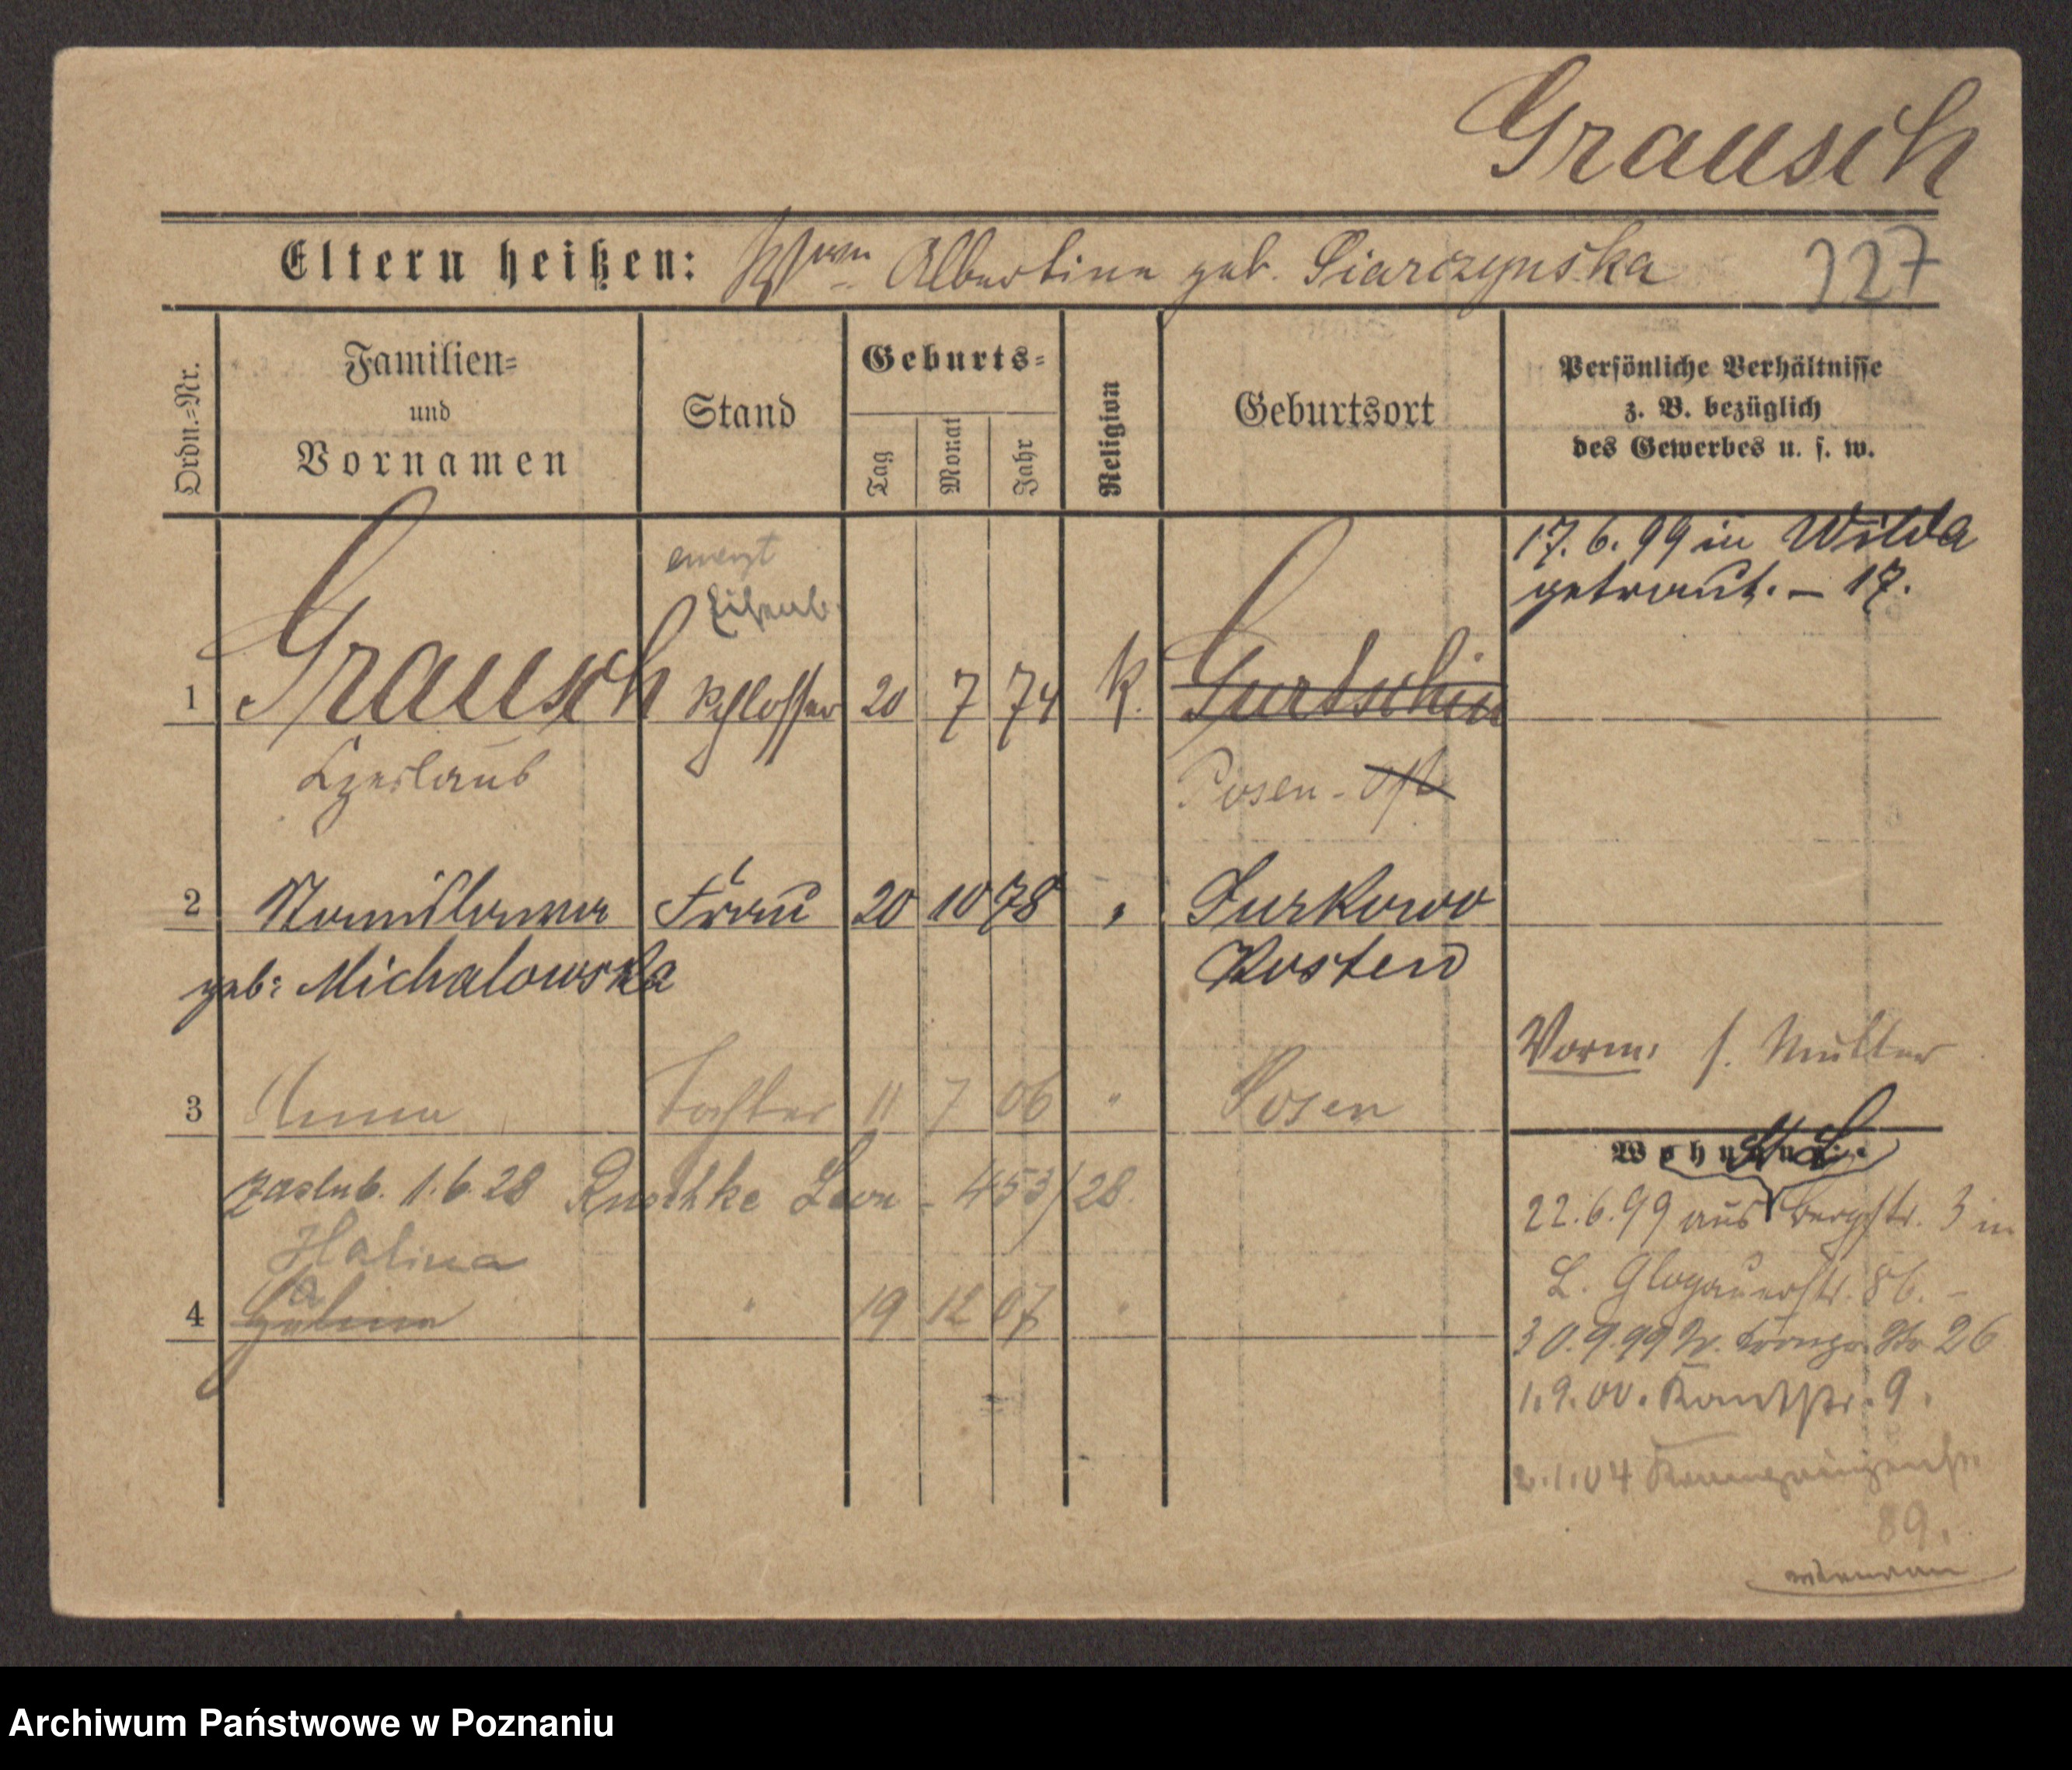 Grausch
Eltern heißen: Albertine geb. Siarczynska 327
Ordn.-Nr.
Familien-
und
Vornamen
Stand
Geburts-
Tag
Monat
Jahr
Religion
Geburtsort
Persönliche Verhältnisse
z. B. bezüglich
des Gewerbes u. s. w.
17. 6. 99 in Wilda
getraut. – 17.
Eisenb.
1 Grausch Schlosser 20 7 74 k. Gurtschin
Czeslaus Posen
2 Stanislawa Frau 20 10 78 " Turkowo
geb: Michalowska Kosten
Vorm: s. Mutter
3 Anna Tochter 11 7 06 " Posen
Wohnung.
zaślub. 1.6.28 Ruschke Leon - 453/28.
22.6.99 aus Bergstr. 3 in
Halina
L. Glogauerstr. 86. –
4 " 19 12 07 "
30.9.99 W. Kronpr. Str 26
1.9.00. Kantstr. 9.
2.1.04 Kronprinzenstr.
89.
Archiwum Państwowe w Poznaniu